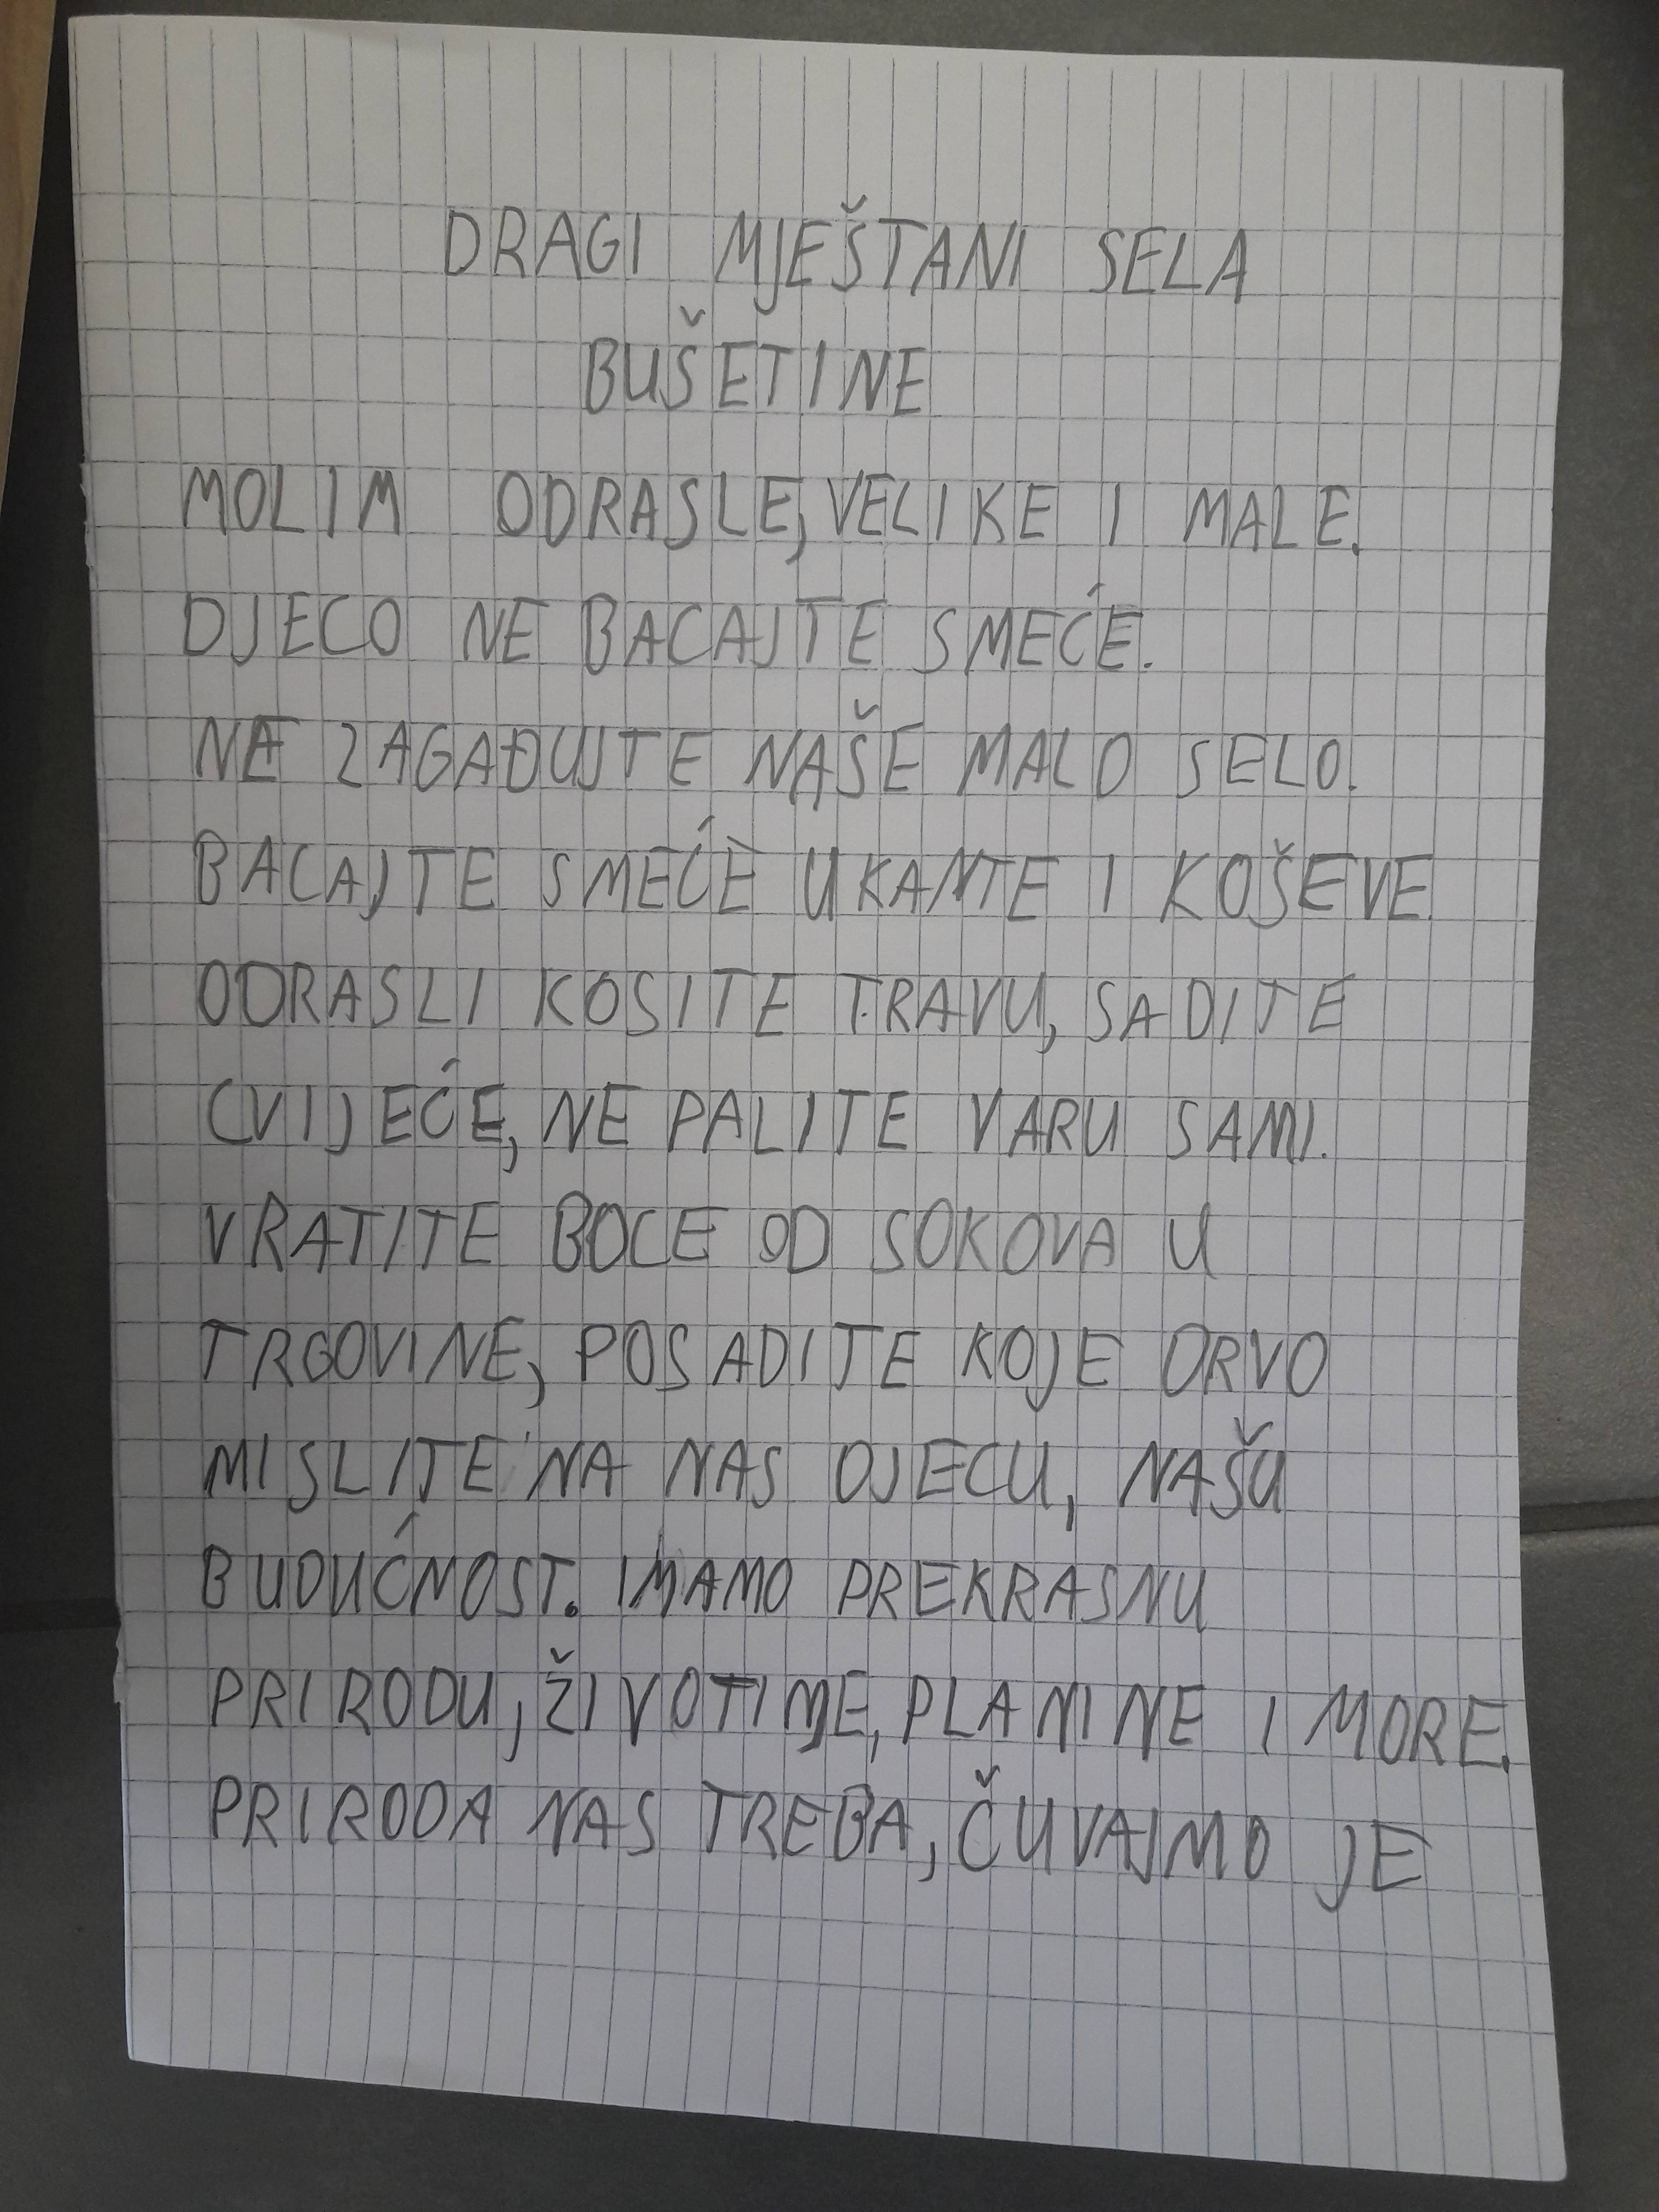 DRAGI MJEŠTANI SELA
BUŠETINE
MOLIM ODRASLE, VELIKE I MALE.
DJECO NE BACAJTE SMEĆE.
NE ZAGAĐUJTE NAŠE MALO SELO.
BACAJTE SMEĆE U KANTE I KOŠEVE
ODRASLI KOSITE TRAVU, SADITE
CVIJEĆE, NE PALITE VARU SAMI.
VRATITE BOCE OD SOKOVA U
TRGOVINE, POSADITE KOJE DRVO
MISLITE NA NAS DJECU, NAŠU
BUDUĆNOST. IMAMO PREKRASNU
PRIRODU, ŽIVOTINJE, PLANINE I MORE.
PRIRODA NAS TREBA, ČUVAJMO JE